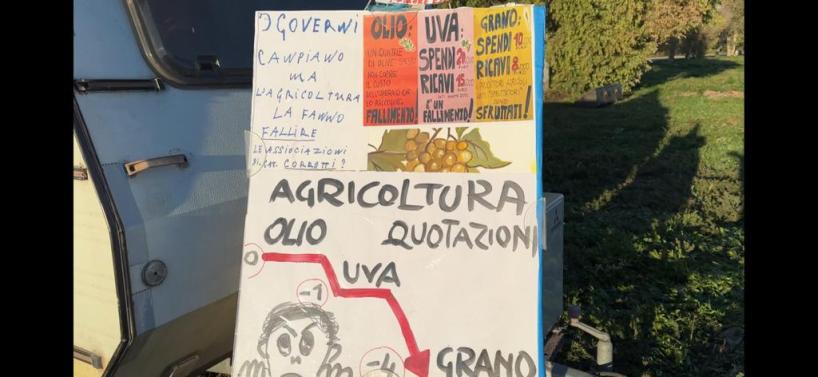 I GOVERNI
CANPIANO
MA
L'AGRICOLTURA
LA FANNO
FALLIRE
LE ASSIOCIAZIONI
DI CAT. CORROTTI?
OLIO:
UN QUINTALE
DI OLIVE
NON COPRE
IL COSTO
FALLIMENTO!
UVA:
SPENDI 20
RICAVI 15
E' UN
FALLIMENTO!
GRANO:
SPENDI 10
RICAVI 8
SFRUTTATI!
AGRICOLTURA
OLIO QUOTAZIONI
0
UVA
-1
-4
GRANO